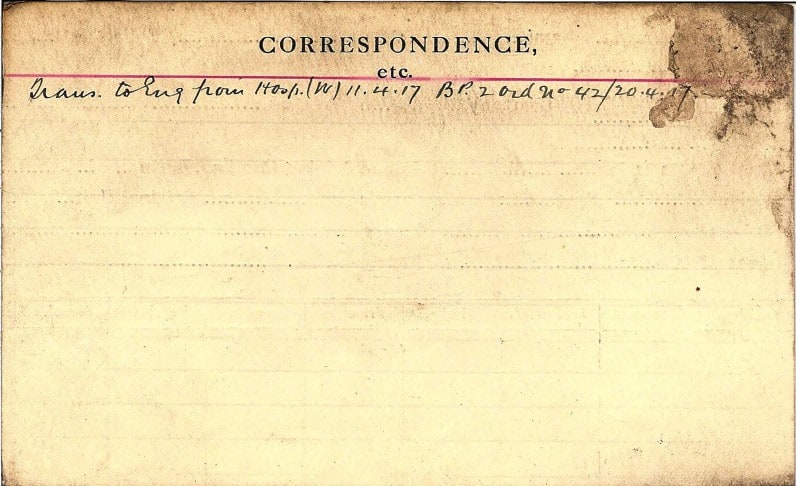 CORRESPONDENCE,
etc.
Trans. to Eng from Hosp. (W) 11.4.17 BP. 2 ord No 42/20.4.17.